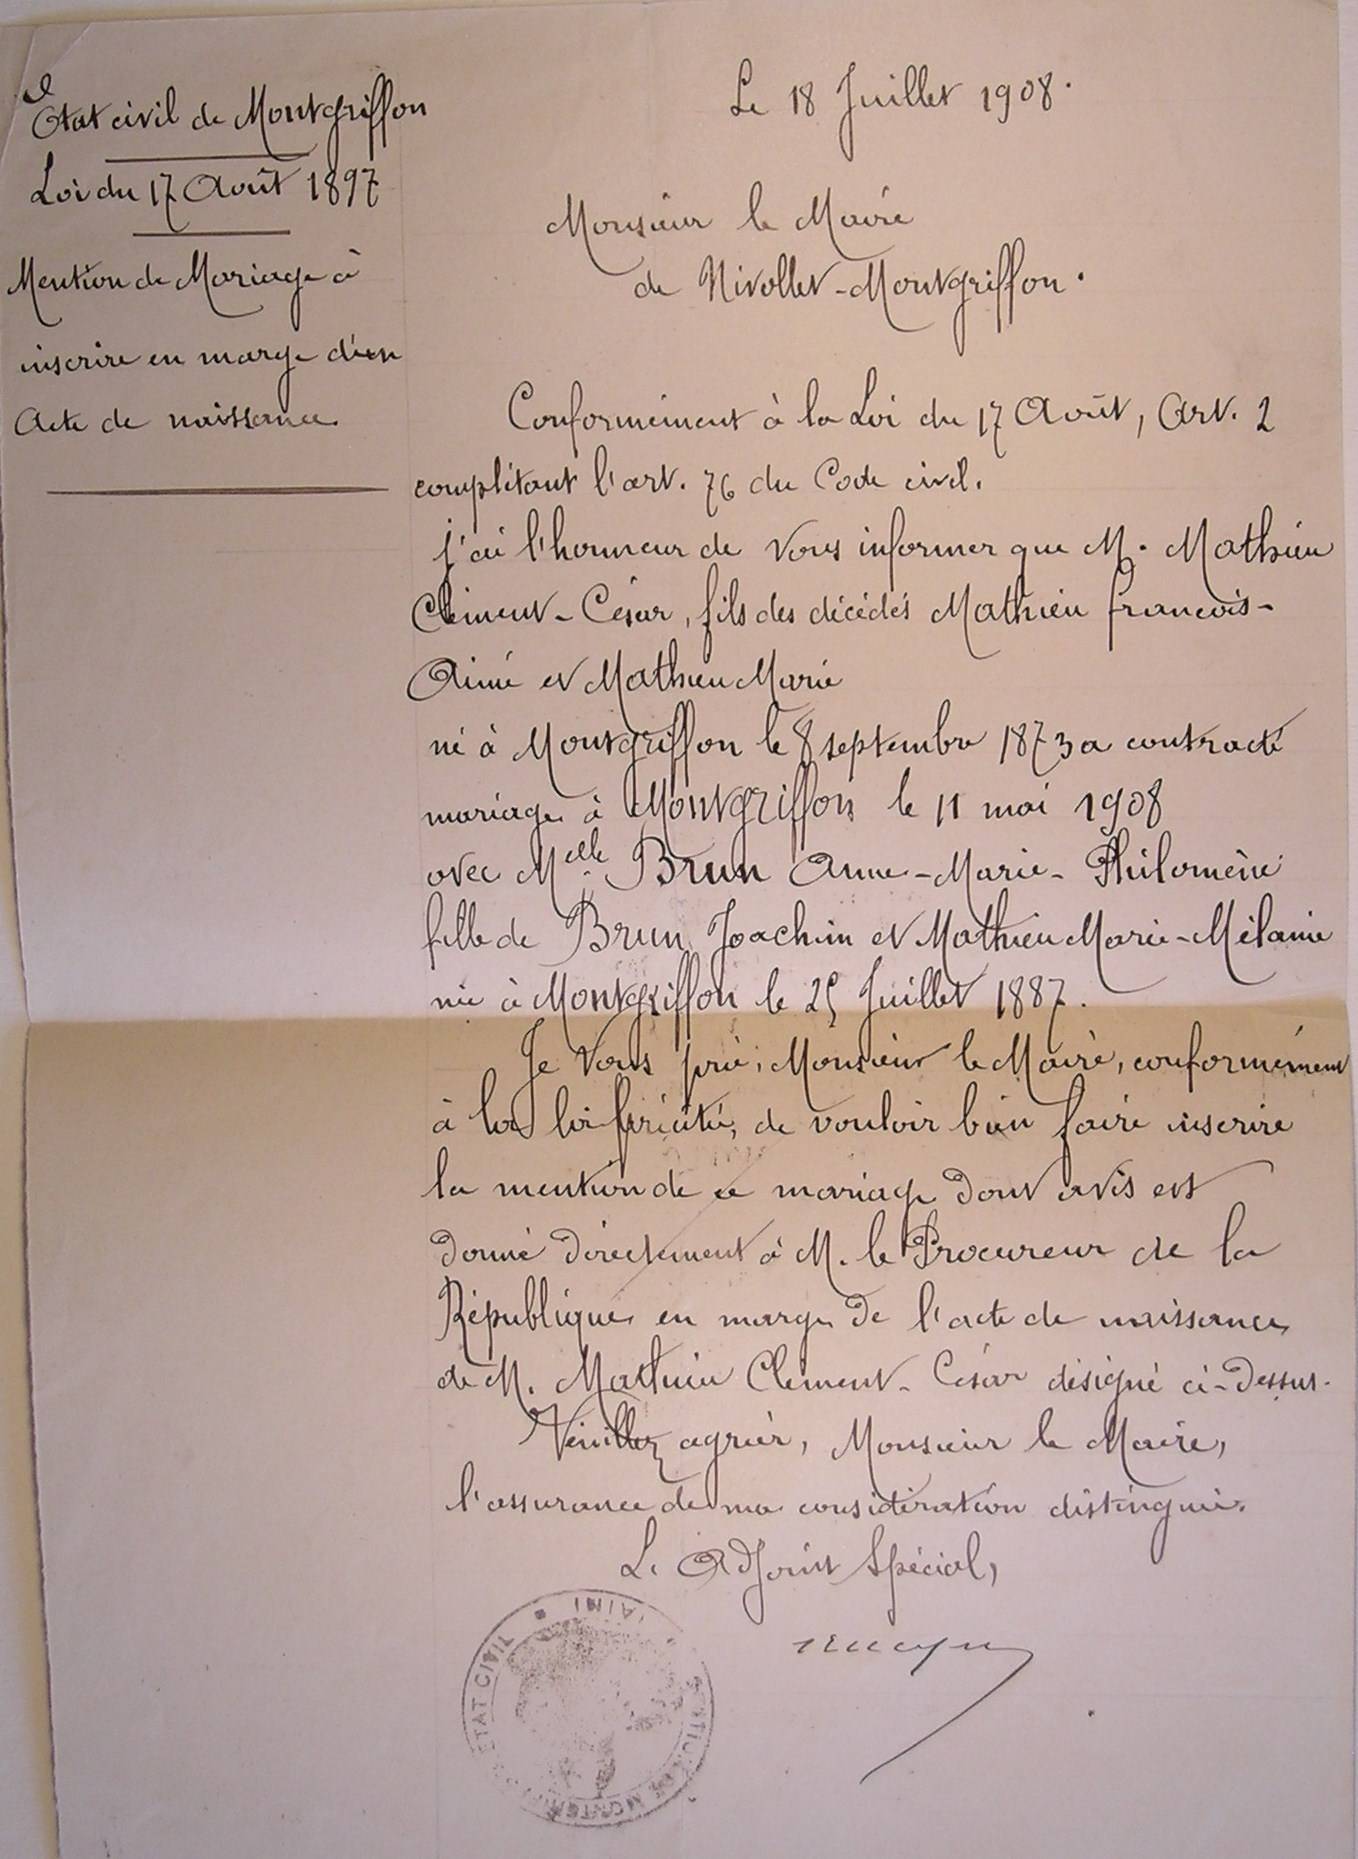 Etat civil de Montgriffon
Loi du 17 Août 1897
Mention de Mariage à
inscrire en marge d'un
Acte de naissance
Le 18 Juillet 1908.
Monsieur le Maire
de Nivollet-Montgriffon.
Conformément à la Loi du 17 Août, Art. 2
complétant l'art. 76 du Code civil.
j'ai l'honneur de vous informer que M. Mathieu
Clément-César, fils des décédés Mathieu françois-
Aimé et Mathieu Marie
né à Montgriffon le 8 septembre 1873 a contracté
mariage à Montgriffon le 11 mai 1908
avec Melle Brun Anne-Marie-Philomène
fille de Brun Joachim et Mathieu Marie-Mélanie
née à Montgriffon le 25 Juillet 1887.
Je vous prie, Monsieur le Maire, conformément
à la loi précitée, de vouloir bien faire inscrire
la mention de ce mariage dont avis est
donné directement à M. le Procureur de la
République en marge de l'acte de naissance
de M. Mathieu Clément-César désigné ci-dessus.
Veuillez agréer, Monsieur le Maire,
l'assurance de ma considération distinguée.
Le Adjoint Spécial,
ETAT CIVIL (AIN)